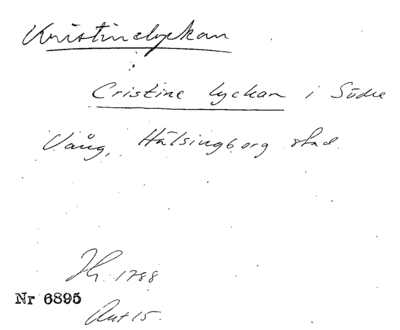 Kristinelyckan
Cristine lyckan i Södre
Vång, Hälsingborg stad.
Hr. 1788
Nr 6895
Akt 15.